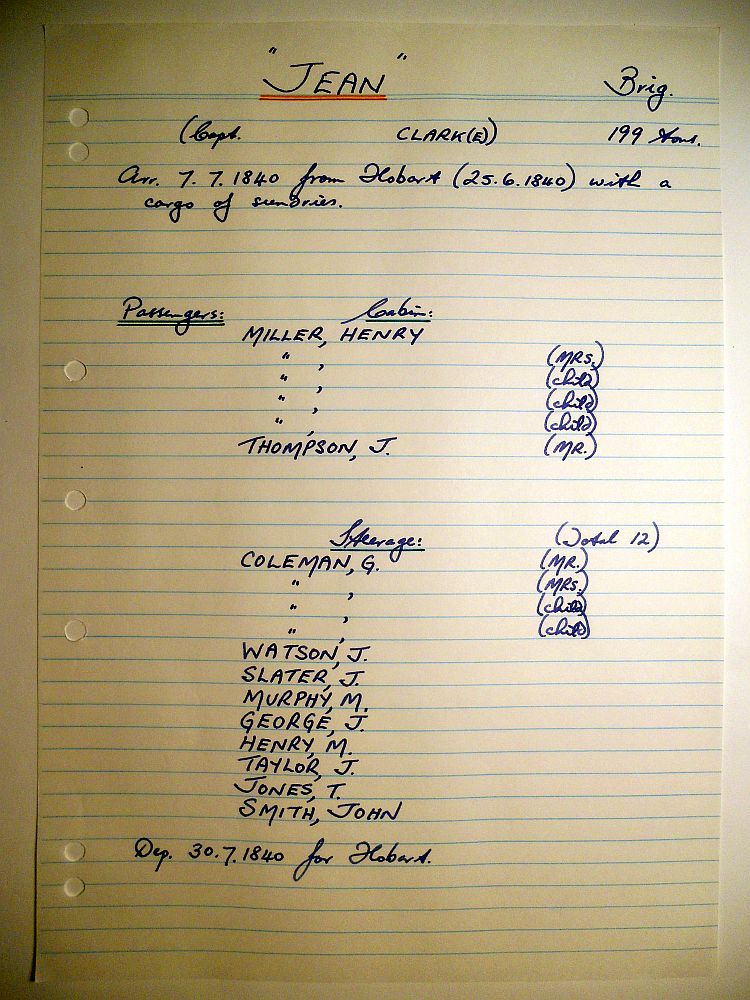 "JEAN" Brig.
(Capt. CLARK(E)) 199 tons.
Arr. 7.7.1840 from Hobart (25.6.1840) with a
cargo of sundries.
Passengers: Cabin:
MILLER, HENRY
" , (MRS.)
" , (child)
" , (child)
" , (child)
THOMPSON, J. (MR.)
Steerage: (Total 12)
COLEMAN, G. (MR.)
" , (MRS.)
" , (child)
" , (child)
WATSON, J.
SLATER, J.
MURPHY, M.
GEORGE, J.
HENRY, M.
TAYLOR, J.
JONES, T.
SMITH, JOHN
Dep. 30.7.1840 for Hobart.